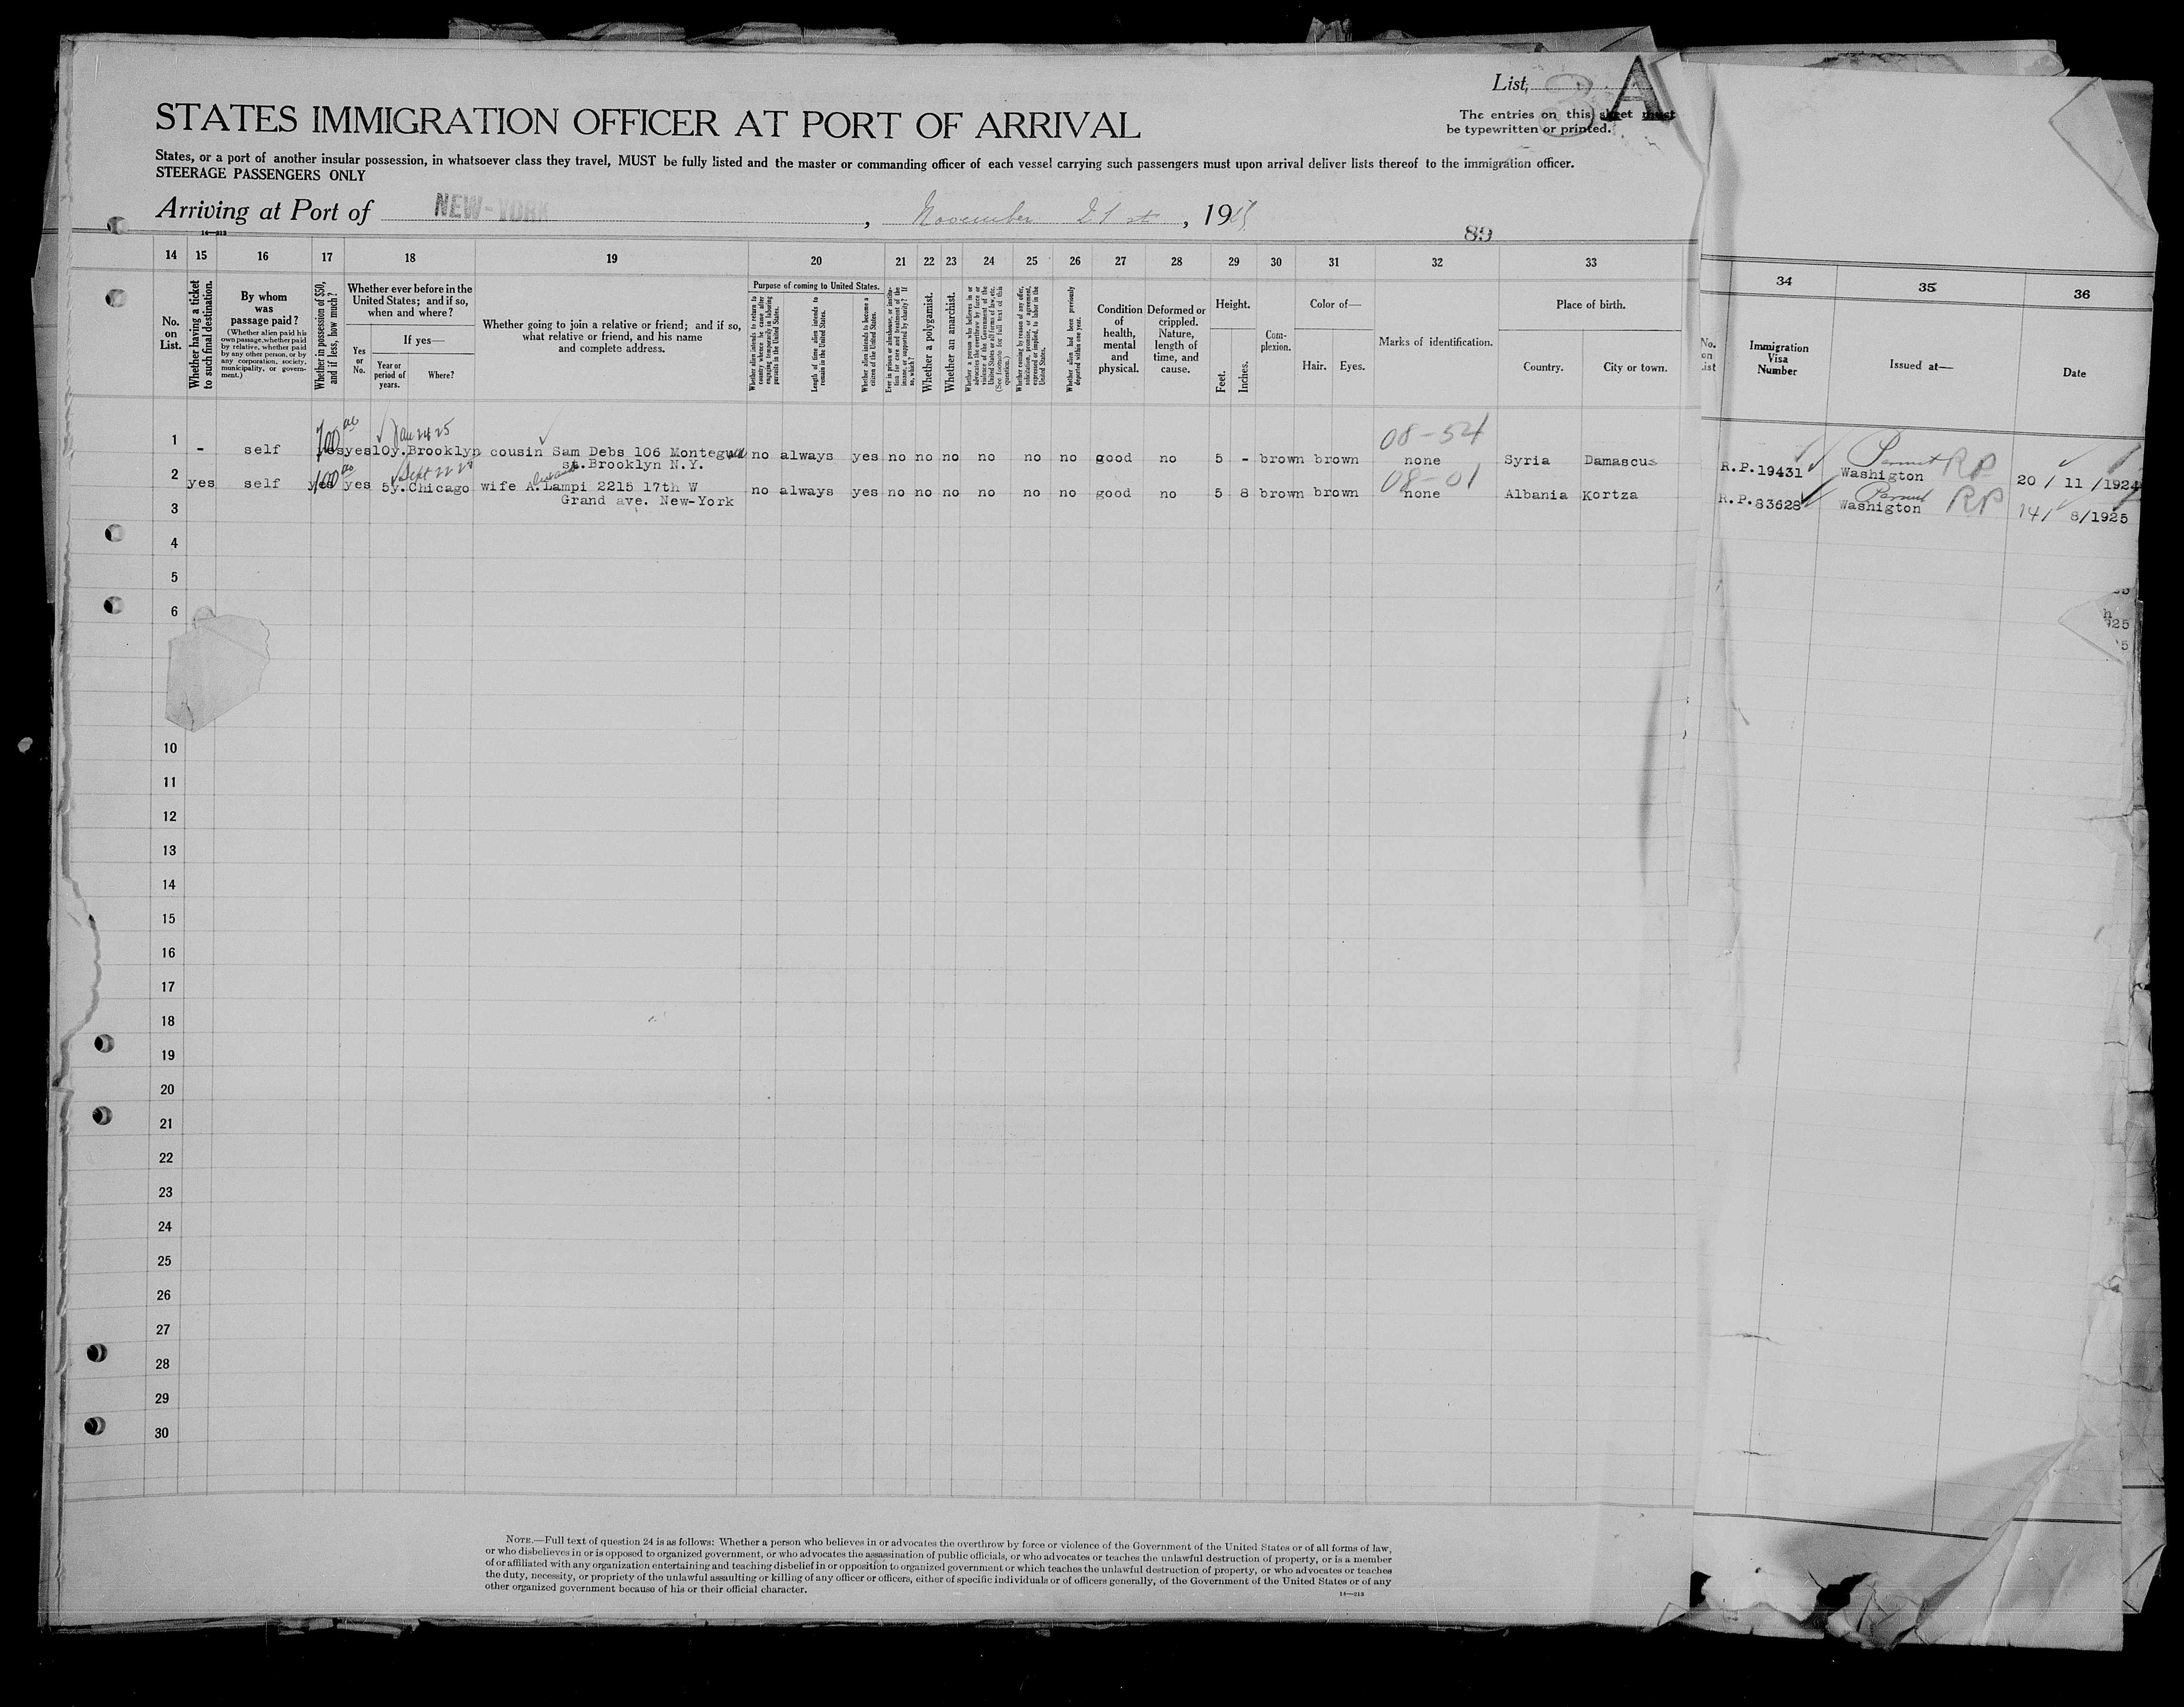 List, 3 A
STATES IMMIGRATION OFFICER AT PORT OF ARRIVAL
The entries on this sheet must
be typewritten or printed.
States, or a port of another insular possession, in whatsoever class they travel, MUST be fully listed and the master or commanding officer of each vessel carrying such passengers must upon arrival deliver lists thereof to the immigration officer.
STEERAGE PASSENGERS ONLY
Arriving at Port of NEW-YORK, November 21st, 19
14—213
89
14 15 16 17 18 19 20 21 22 23 24 25 26 27 28 29 30 31 32 33 34 35 36
No. on List.
Whether having a ticket to such final destination.
By whom was passage paid?
(Whether alien paid his own passage, whether paid by relative, whether paid by any other person, or by any corporation, society, municipality, or government.)
Whether in possession of $50, and if less, how much?
Whether ever before in the United States; and if so, when and where?
Yes or No.
If yes—
Year or period of years.
Where?
Whether going to join a relative or friend; and if so, what relative or friend, and his name and complete address.
Purpose of coming to United States.
Whether alien intends to return to country whence he came after engaging temporarily in laboring pursuits in the United States.
Length of time alien intends to remain in the United States.
Whether alien intends to become a citizen of the United States.
Ever in prison or almshouse, or institution for care and treatment of the insane, or supported by charity? If so, which?
Whether a polygamist.
Whether an anarchist.
Whether a person who believes in or advocates the overthrow by force or violence of the Government of the United States or all forms of law, etc. (See footnote for full text of this question.)
Whether coming by reason of any offer, solicitation, promise, or agreement, expressed or implied, to labor in the United States.
Whether alien had been previously deported within one year.
Condition of health, mental and physical.
Deformed or crippled. Nature, length of time, and cause.
Height.
Feet.
Inches.
Complexion.
Color of—
Hair. Eyes.
Marks of identification.
Place of birth.
Country. City or town.
No. on List
Immigration Visa Number
Issued at—
Date
100 Jan 24 25 08-54
1 - self yes yes 10y. Brooklyn cousin Sam Debs 106 Montegue no always yes no no no no no no good no 5 - brown brown none Syria Damascus R.P. 19431 Permit RP Washigton 20 / 11 /1924
st. Brooklyn N.Y.
100 Sept 22 08-01
2 yes self yes yes 5y. Chicago wife A. Lampi 2215 17th W no always yes no no no no no no good no 5 8 brown brown none Albania Kortza R.P. 83628 Permit RP Washigton 14/ 8/1925
Grand ave. New-York
3
4
5
6
10
11
12
13
14
15
16
17
18
19
20
21
22
23
24
25
26
27
28
29
30
NOTE.—Full text of question 24 is as follows: Whether a person who believes in or advocates the overthrow by force or violence of the Government of the United States or of all forms of law,
or who disbelieves in or is opposed to organized government, or who advocates the assassination of public officials, or who advocates or teaches the unlawful destruction of property, or is a member
of or affiliated with any organization entertaining and teaching disbelief in or opposition to organized government or which teaches the unlawful destruction of property, or who advocates or teaches
the duty, necessity, or propriety of the unlawful assaulting or killing of any officer or officers, either of specific individuals or of officers generally, of the Government of the United States or of any
other organized government because of his or their official character.
14—213